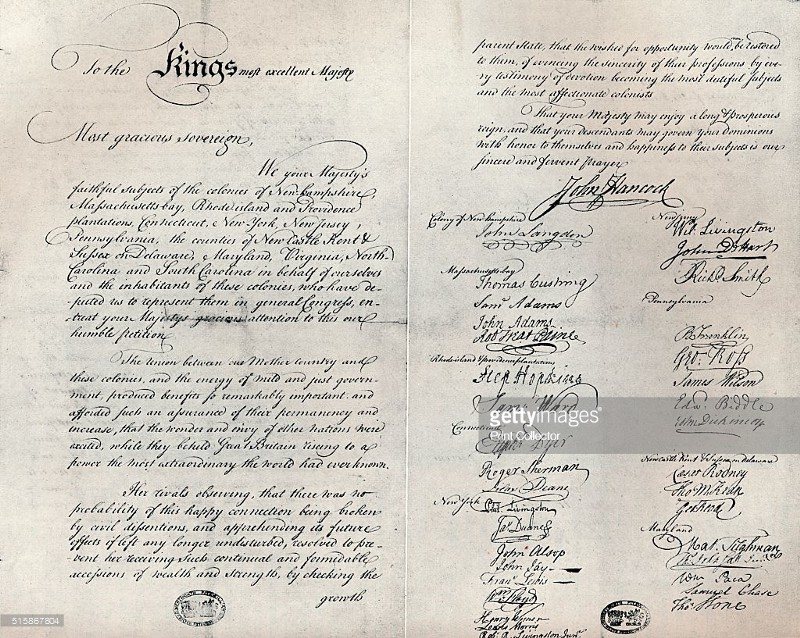 To the Kings most excellent Majesty
Most gracious sovereign,
We your Majesty's
faithful subjects of the colonies of New-hampshire,
Massachusetts-bay, Rhode island and Providence
plantations, Connecticut, New-York, New Jersey,
Pennsylvania, the counties of New Castle Kent &
Sussex on Delaware, Maryland, Virginia, North-
Carolina and South Carolina in behalf of ourselves
and the inhabitants of these colonies, who have de-
puted us to represent them in general Congress, en-
treat your Majestys gracious attention to this our
humble petition.
The union between our Mother Country and
these colonies, and the energy of mild and just govern-
ment, produced benefits so remarkably important, and
afforded such an assurance of their permanency and
increase, that the wonder and envy of other nations were
excited, while they beheld Great Britain riseing to a
power the most extraordinary the world had ever known.
Her rivals observing, that there was no
probability of this happy connection being broken
by civil dissentions, and apprehending its future
effects if left any longer undisturbed, resolved to pre-
vent her receiving such continual and formidable
accessions of wealth and strength, by checking the
growth
parent state, that the wished for opportunity would be restored
to them, of evincing the sincerity of their professions by eve-
ry testimony of devotion becoming the most dutiful subjects
and the most affectionate colonists.
That your Majesty may enjoy a long & prosperous
reign, and that your descendants may govern your dominions
with honor to themselves and happiness to their subjects is our
sincere and fervent prayer.
John Hancock
Colony of New hampshire
John Langdon
Massachusetts bay
Thomas Cushing
Saml Adams
John Adams
Rob Treat Paine
Rhode island & providence plantations
Step Hopkins
Sam: Ward
Connecticut
Elipht Dyer
Roger Sherman
Silas Deane
New York
Phil. Livingston
Jas Duane
John Alsop
John Jay
Frans Lewis
Wm Floyd
Henry Wisner
Lewis Morris
Robt R Livingston Junr
New Jersey
Wil: Livingston
John De Hart
Richd Smith
Pennsylvania
B Franklin
Geo: Ross
James Wilson
Edwd Biddle
John Dickinson
Newcastle Kent & Sussex on delaware
Caesar Rodney
Tho M:Kean
Geo Read
Maryland
Mat. Tilghman
Wm Paca
Samuel Chase
Thos Stone
gettyimages
Print Collector
515867804